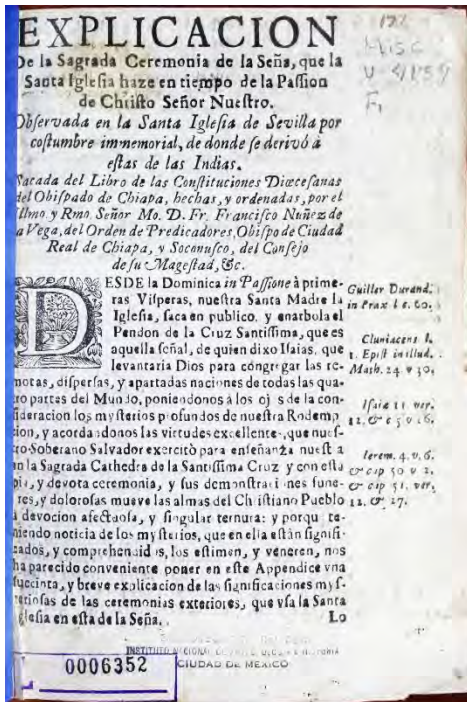 EXPLICACION
De la Sagrada Ceremonia de la Seña, que la
Santa Iglesia haze en tiempo de la Passion
de Christo Señor Nuestro.
Observada en la Santa Iglesia de Sevilla por
costumbre immemorial, de donde se derivò à
estas de las Indias.
Sacada del Libro de las Constituciones Diœcesanas
del Obispado de Chiapa, hechas, y ordenadas, por el
Illmo. y Rmo. Señor Mo. D. Fr. Francisco Nuñez de
la Vega, del Orden de Predicadores, Obispo de Ciudad
Real de Chiapa, y Soconusco, del Consejo
de su Magestad, &c.
DESDE la Dominica in Passione à prime-
ras Visperas, nuestra Santa Madre la
Iglesia, saca en publico, y enarbola el
Pendon de la Cruz Santissima, que es
aquella señal, de quien dixo Isaias, que
levantaria Dios para côngregar las re-
motas, dispersas, y apartadas naciones de todas las qua-
tro partes del Mundo, poniendonos à los oj s de la con-
sideracion los mysterios profundos de nuestra Rodemp
cion, y acordandonos las virtudes excellente, que nues-
tro Soberano Salvador exercitò para enseñanza nuest a
en la Sagrada Cathedra de la Santissima Cruz y con esta
pia, y devota ceremonia, y sus demonstraci nes fune-
res, y dolorosas mueve las almas del Ch istiano Pueblo
à devocion afectuosa, y singular ternura: y porqu te-
niendo noticia de los mysterios, que en ella estàn signifi-
cados, y comprehendid s, los estimen, y veneren, nos
ha parecido conveniente poner en este Appendice vna
succinta, y breve explicacion de las significaciones mys-
teriosas de las ceremonias exteriores, que vsa la Santa
Iglesia en esta de la Seña.
Lo
Guiller Durand.
in Prax l. c. 60.
Cluniacens l.
1. Epist in illud.
Math. 24 v 30,
Isaiæ 11 ver.
12. & c 5 v 26.
Ierem. 4. v. 6.
& cap 50 v 2,
& cap 51. ver.
12. & 27.
172
Misc
INSTITUTO NACIONAL DE ANTROPOLOGIA E HISTORIA
CIUDAD DE MEXICO
0006352